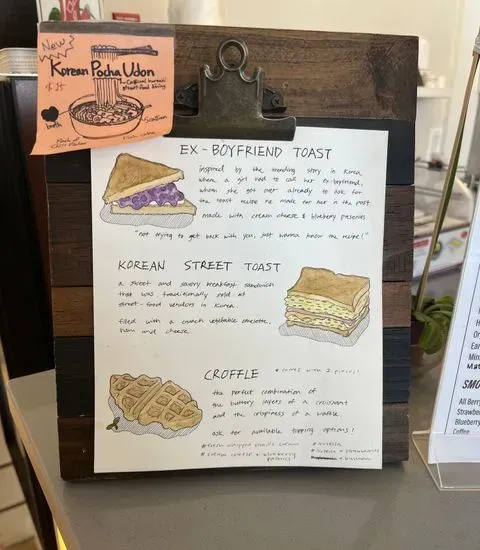 New
Korean Pocha Udon
street-food dining
broth
Scallion
Fish cake
EX-BOYFRIEND TOAST
inspired by the trending story in Korea
where a girl had to call her ex-boyfriend,
whom she got over already to ask for
the toast recipe he made for her in the past.
made with cream cheese & blueberry preserves
"not trying to get back with you, just wanna know the recipe!"
KOREAN STREET TOAST
a sweet and savory breakfast sandwich
that was traditionally sold at
street-food vendors in Korea.
filled with a crunch vegetable omelette,
ham and cheese.
CROFFLE
* comes with 2 pieces!
the perfect combination of
the buttery layers of a croissant
and the crispiness of a waffle.
ask for available topping options!
* fresh whipped vanilla cream
* cream cheese + blueberry
preserves
* nutella
* nutella + strawberries
+ banana
SMO
All Berry
Strawbe
Blueberry
Coffee